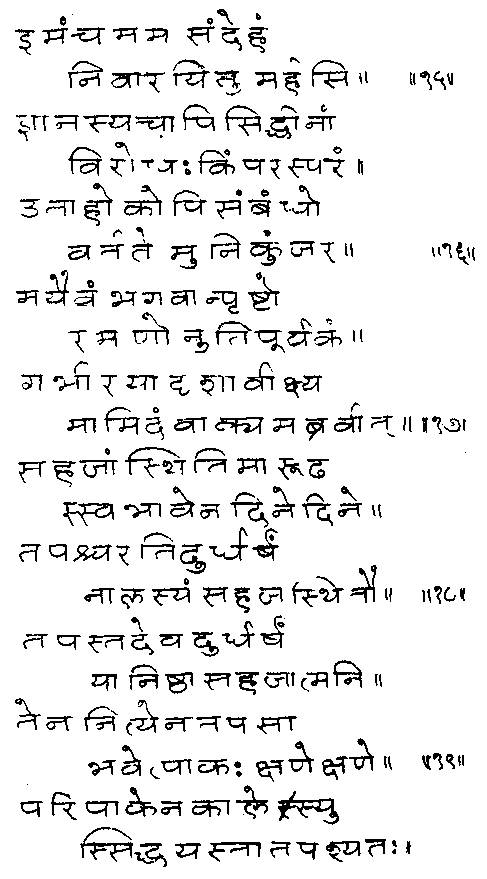 इमं च मम संदेहं
निवारयितुमर्हसि॥ ॥१५॥
ज्ञानस्यचापिसिद्धीनां
विरोधःकिंपरस्परं॥
उताहोकोपिसंबंधो
वर्तते मुनिकुंजर॥ ॥१६॥
मयैवंभगवान्पृष्टो
रमणो नुतिपूर्वकं॥
गभीरयादृशावीक्ष्य
मामिदंवाक्यमब्रवीत्॥ ॥१७॥
सहजांस्थितिमारूढ
स्स्वभावेन दिनेदिने॥
तपश्चरतिदुर्धर्षं
नालस्यंसहजस्थितौ॥ ॥१८॥
तपस्तदेवदुर्धर्षं
यानिष्ठासहजात्मनि॥
तेननित्येनतपसा
भवेत्पाकः क्षणेक्षणे॥ ॥१९॥
परिपाकेनकालेस्यु
स्सिद्धयस्तातपश्यतः।